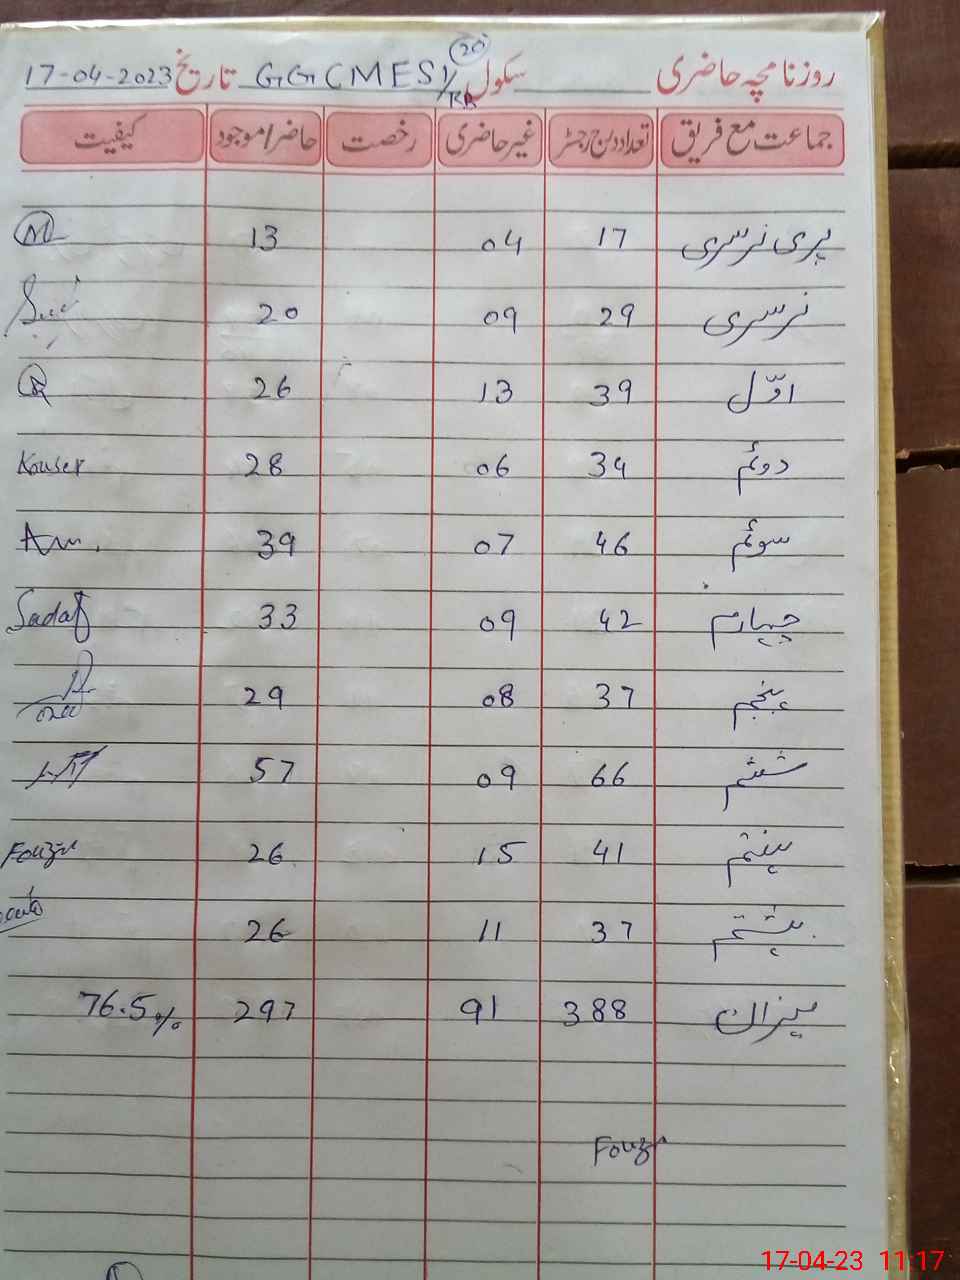 روزنامچہ حاضری سکول GGCMES 1/RR (20) تاریخ 17-04-2023
جماعت مع فریق تعداد درج رجسٹر غیر حاضری رخصت حاضر/موجود کیفیت
پری نرسری 17 04 13 M
نرسری 29 09 20
اوّل 39 13 26
دوئم 34 06 28 Kouser
سوئم 46 07 39
چہارم 42 09 33 Sadaf
پنجم 37 08 29
ششم 66 09 57
ہفتم 41 15 26 Fouzia
ہشتم 37 11 26
میزان 388 91 297 76.5%
Fouzia
17-04-23 11:17